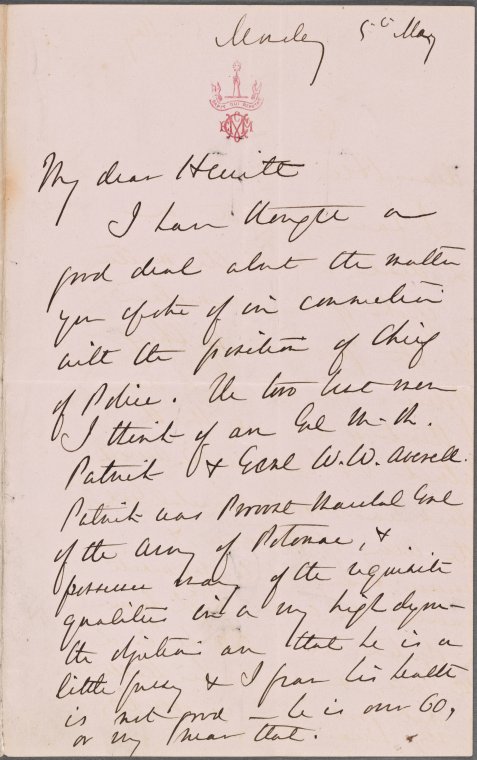 Monday 5th May
My dear Hewitt
I have thought a
good deal about the matter
you spoke of in connection
with the position of Chief
of Police. The two best men
I think of are Genl M. R.
Patrick & Genl W. W. Averell.
Patrick was Provost Marshal Genl
of the Army of Potomac, &
possesses many of the requisite
qualities in a very high degree—
the objections are that he is a
little fussy & I fear his health
is not good — he is over 60,
or very near that.